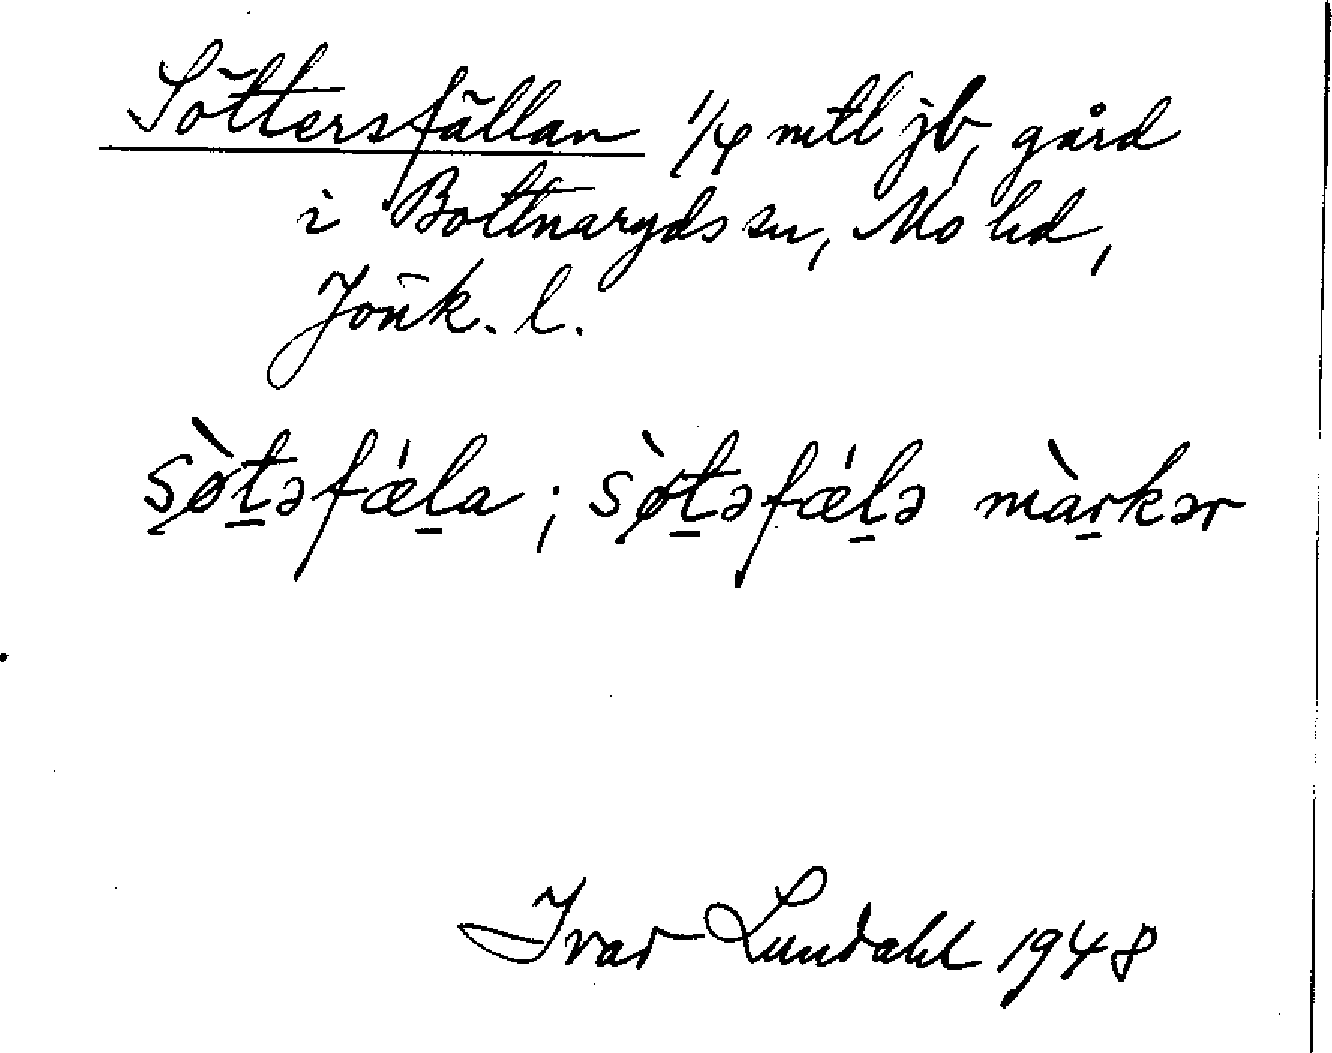 Söttersfällan 1/4 mtl jb, gård
i Bottnaryds sn, Mo hd,
Jönk. l.
sø̀t̠əfǽl̠a ; sø̀t̠əfǽl̠ə màr̠kər
Ivar Lundahl 1948